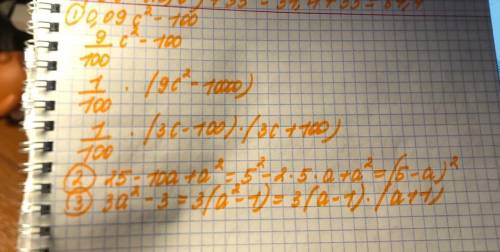 ① 0,09c² - 100
9/100 c² - 100
1/100 · (9c² - 1000)
1/100 · (3c - 100) · (3c + 100)
② 25 - 10a + a² = 5² - 2 · 5 · a + a² = (5 - a)²
③ 3a² - 3 = 3(a² - 1) = 3(a - 1) · (a + 1)